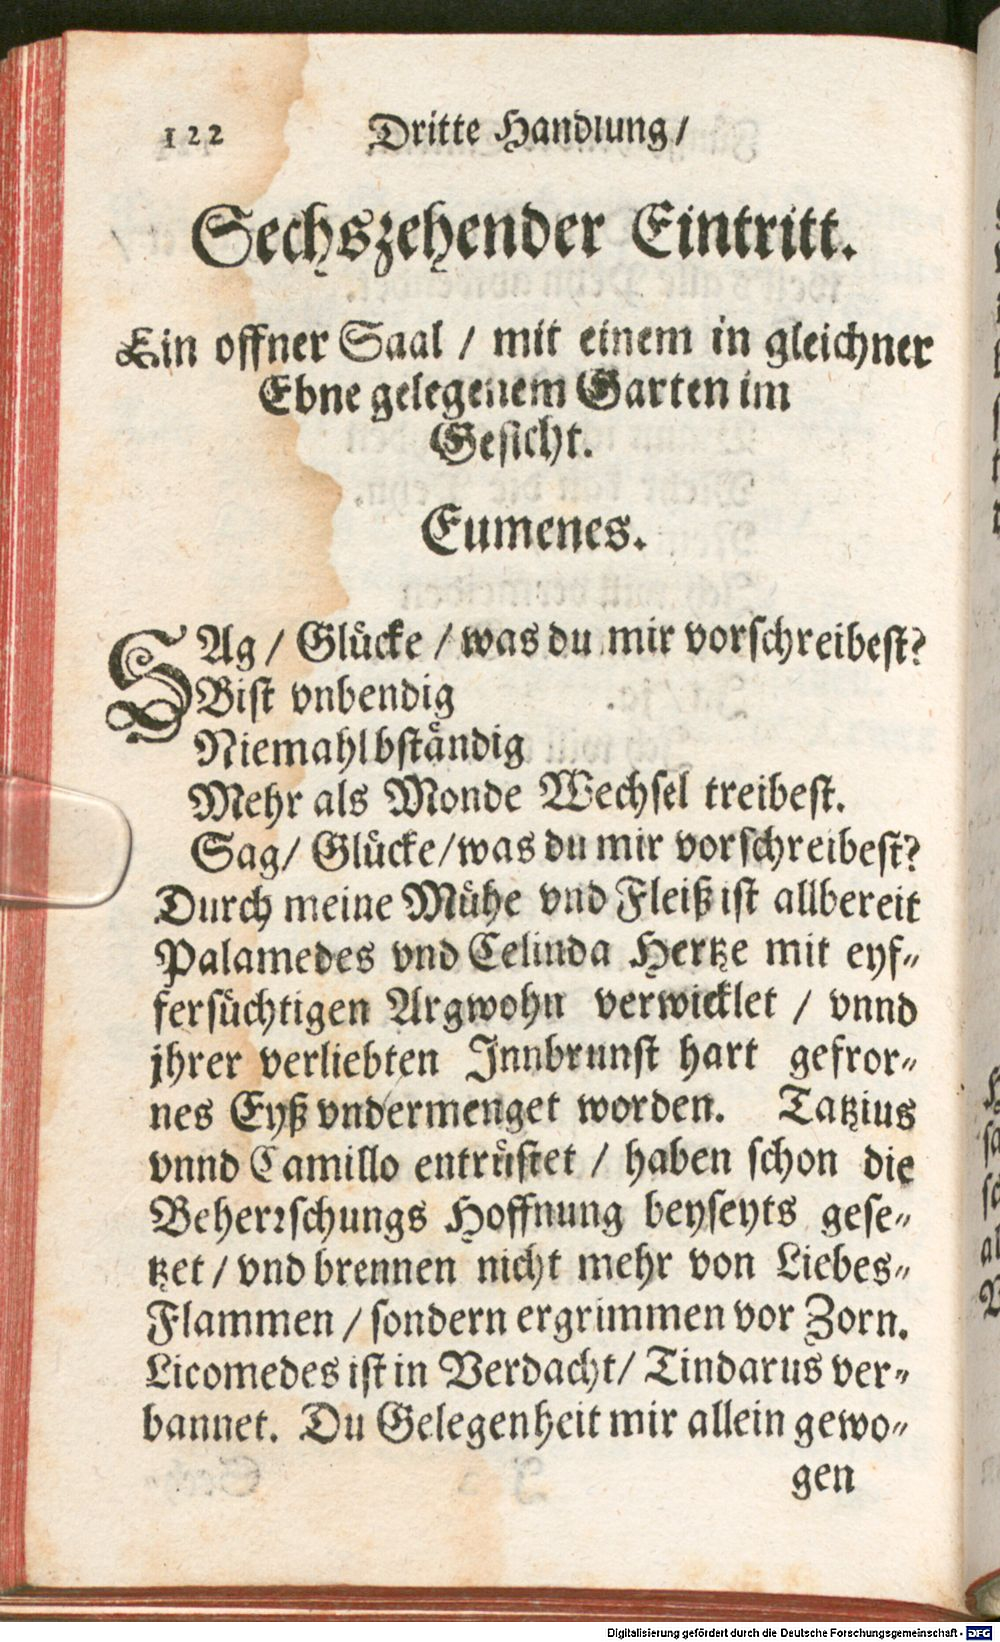 122 Dritte Handlung/
Sechszehender Eintritt.
Ein offner Saal / mit einem in gleichner
Ebne gelegenem Garten im
Gesicht.
Eumenes.
SAg / Glücke / was du mir vorschreibest?
Bist vnbendig
Niemahl bständig
Mehr als Monde Wechsel treibest.
Sag/ Glücke/was du mir vorschreibest?
Durch meine Mühe vnd Fleiß ist allbereit
Palamedes vnd Celinda Hertze mit eyf-
fersüchtigen Argwohn verwicklet / vnnd
jhrer verliebten Innbrunst hart gefror-
nes Eyß vndermenget worden. Tatzius
vnnd Camillo entrüstet / haben schon die
Beherrschungs Hoffnung beyseyts gese-
tzet / vnd brennen nicht mehr von Liebes-
Flammen / sondern ergrimmen vor Zorn.
Licomedes ist in Verdacht/ Tindarus ver-
bannet. Du Gelegenheit mir allein gewo-
gen
Digitalisierung gefördert durch die Deutsche Forschungsgemeinschaft - DFG